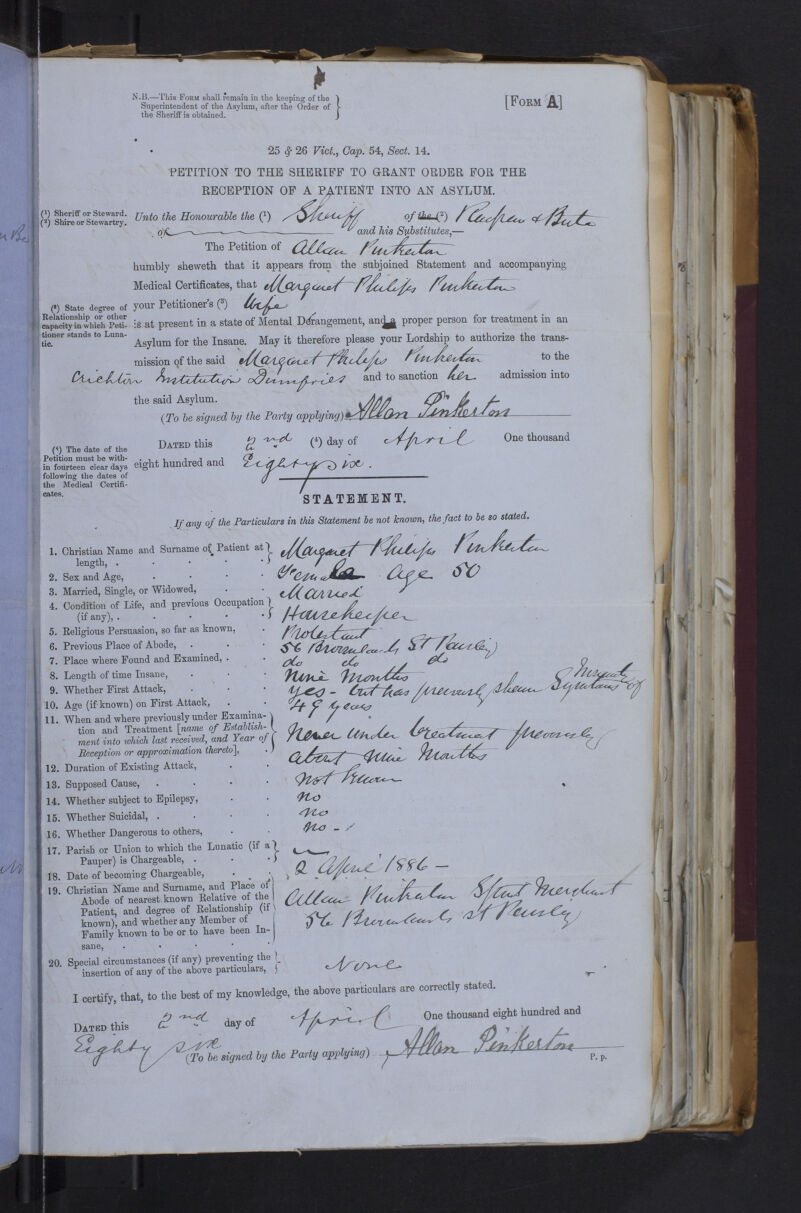 N.B.—This Form shall remain in the keeping of the
Superintendent of the Asylum, after the Order of
the Sheriff is obtained.
[Form A]
25 & 26 Vict., Cap. 54, Sect. 14.
PETITION TO THE SHERIFF TO GRANT ORDER FOR THE
RECEPTION OF A PATIENT INTO AN ASYLUM.
(¹) Sheriff or Steward.
(²) Shire or Stewartry.
Unto the Honourable the (¹) Sheriff of the (²) Renfrew & Bute
of and his Substitutes,—
The Petition of Allan Pinkerton
humbly sheweth that it appears from the subjoined Statement and accompanying
Medical Certificates, that Margaret Philips Pinkerton
(³) State degree of
Relationship or other
capacity in which Peti-
tioner stands to Luna-
tic.
your Petitioner's (³) Wife
is at present in a state of Mental Derangement, and a proper person for treatment in an
Asylum for the Insane. May it therefore please your Lordship to authorize the trans-
mission of the said Margaret Philips Pinkerton to the
Crichton Institution Dumfries and to sanction her admission into
the said Asylum.
(To be signed by the Party applying) Allan Pinkerton
(⁴) The date of the
Petition must be with-
in fourteen clear days
following the dates of
the Medical Certifi-
cates.
Dated this 2nd (⁴) day of April One thousand
eight hundred and Eighty six.
STATEMENT.
If any of the Particulars in this Statement be not known, the fact to be so stated.
1. Christian Name and Surname of Patient at
length, . . . . . Margaret Philips Pinkerton
2. Sex and Age, . . . . Female Age 50
3. Married, Single, or Widowed, . . Married
4. Condition of Life, and previous Occupation
(if any), . . . . . Housekeeper
5. Religious Persuasion, so far as known, . Protestant
6. Previous Place of Abode, . . . 56 Broomlands St Paisley
7. Place where Found and Examined, . . do do do
8. Length of time Insane, . . . Nine Months
9. Whether First Attack, . . . Yes - but has previously shewn Symptoms of Insanity
10. Age (if known) on First Attack, . . 49 years
11. When and where previously under Examina-
tion and Treatment [name of Establish-
ment into which last received, and Year of
Reception or approximation thereto], . Never under treatment previously
12. Duration of Existing Attack, . . about nine Months
13. Supposed Cause, . . . . Not known
14. Whether subject to Epilepsy, . . no
15. Whether Suicidal, . . . . no
16. Whether Dangerous to others, . . no -
17. Parish or Union to which the Lunatic (if a
Pauper) is Chargeable, . . .
18. Date of becoming Chargeable, . . 2 April 1886 —
19. Christian Name and Surname, and Place of
Abode of nearest known Relative of the
Patient, and degree of Relationship (if
known), and whether any Member of
Family known to be or to have been In-
sane, . . . . .
Allan Pinkerton Spirit Merchant
56 Broomlands St Paisley
20. Special circumstances (if any) preventing the
insertion of any of the above particulars, None
I certify, that, to the best of my knowledge, the above particulars are correctly stated.
Dated this 2nd day of April One thousand eight hundred and
Eighty six (To be signed by the Party applying) Allan Pinkerton
P. p.